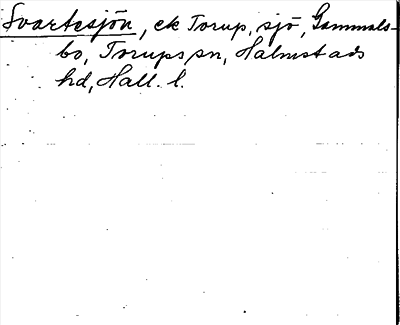 Svartesjön, ek Torup, sjö, Gammals-
bo, Torups sn, Halmstads
hd, Hall. l.